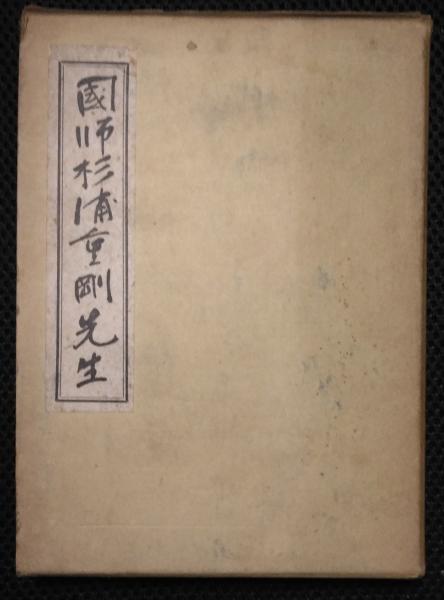 國師杉浦重剛先生